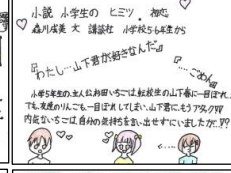 小説 小学生の ヒミツ・初恋
森川成美 文 講談社 小学校5年生から
『わたし…山下君が好きなんだ』
『……ごめん』
小学5年生の主人公
いちごは転校生の山下春に一目ぼれ
でも、友達のりんごも一目ぼれしてしまい、山下君に、もうアタック!?
内気ないちごは自分の気持ちを言い出せずにいましたが…!?